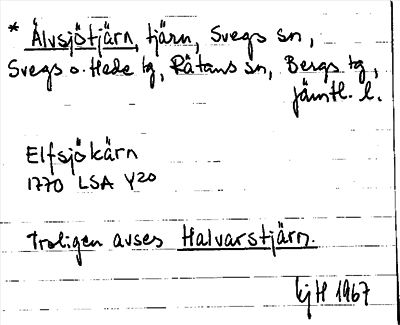 * Älvsjötjärn, tjärn, Svegs sn,
Svegs o. Hede tg, Rätans sn, Bergs tg,
jämtl. l.
Elfsjökärn
1770 LSA Y20
Troligen avses Halvarstjärn.
1967